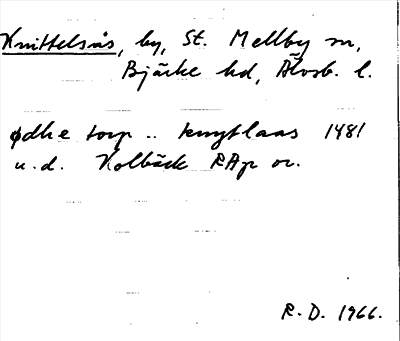 Knittelsås, by, St. Mellby sn,
Bjärke hd, Älvsb. l.
ødhe torp .. knytlaas 1481
u.d. Kolbäck RAp or.
R.D. 1966.